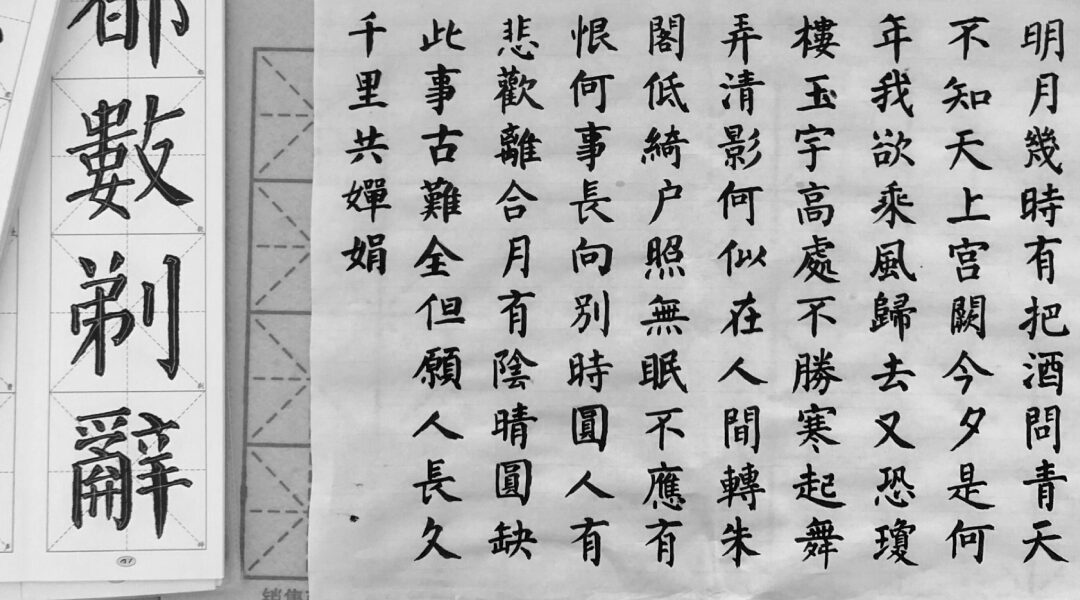 明月幾時有把酒問青天
不知天上宮闕今夕是何
年我欲乘風歸去又恐瓊
樓玉宇高處不勝寒起舞
弄清影何似在人間轉朱
閣低綺户照無眠不應有
恨何事長向别時圓人有
悲歡離合月有陰晴圓缺
此事古難全但願人長久
千里共嬋娟
數剃辭